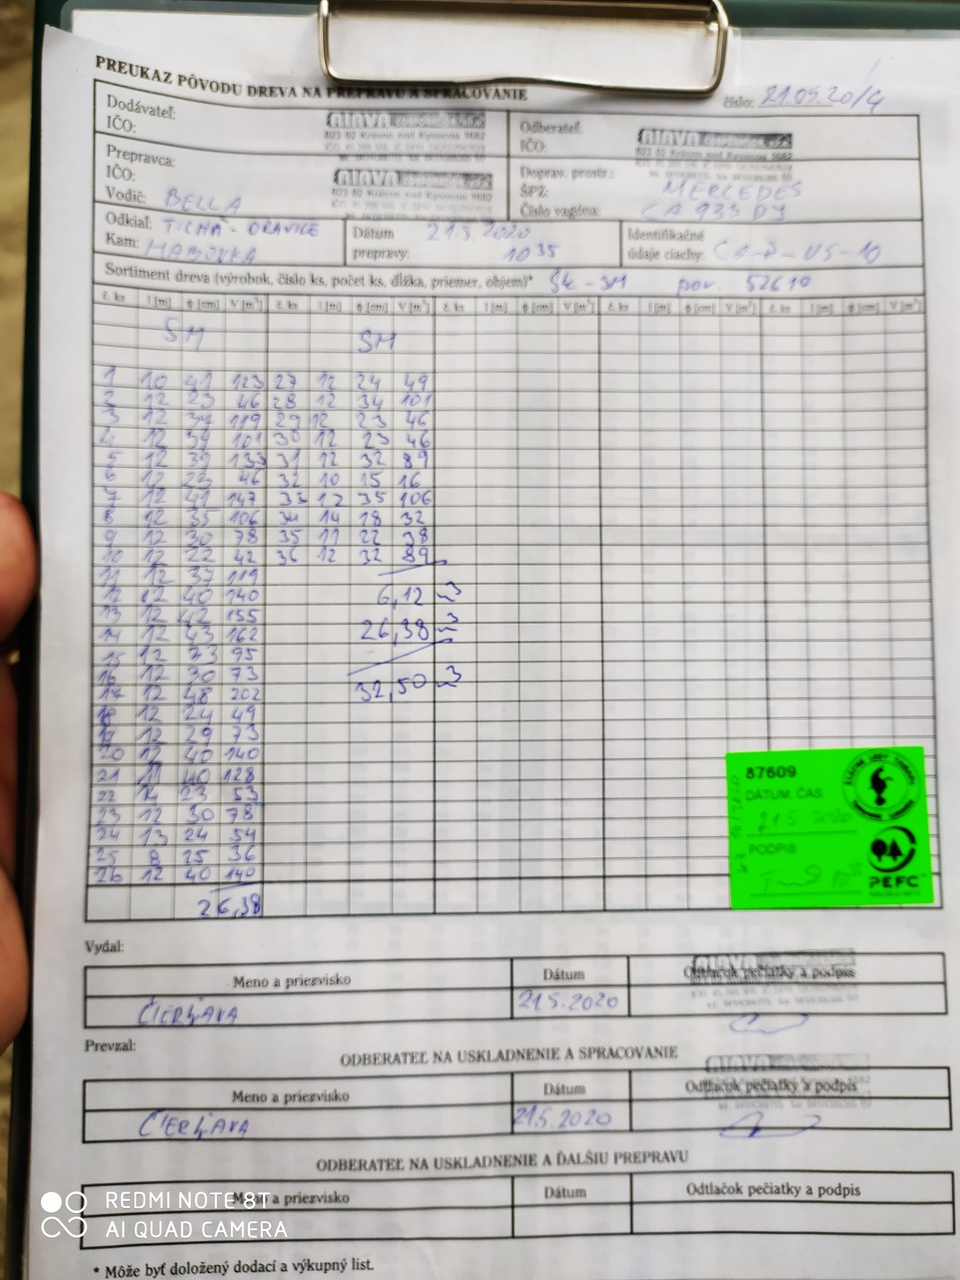 PREUKAZ PÔVODU DREVA NA PREPRAVU A SPRACOVANIE
číslo: 21.05.20/4
Dodávateľ:
IČO:
Odberateľ:
IČO:
Prepravca:
IČO:
Vodič: BELLA
Doprav. prostr.: MERCEDES
ŠPZ: CA 933 DY
Číslo vagóna:
Odkiaľ: TICHÁ - ORAVICE
Kam: HABOVKA
Dátum 21.5.2020
prepravy: 10 35
Identifikačné
údaje ciachy:
Sortiment dreva (výrobok, číslo ks, počet ks, dĺžka, priemer, objem)* 52610
č. ks l [m] ϕ [cm] V [m³] č. ks l [m] ϕ [cm] V [m³] č. ks l [m] ϕ [cm] V [m³] č. ks l [m] ϕ [cm] V [m³] č. ks l [m] ϕ [cm] V [m³]
SM SM
1 10 41 123 27 12 24 49
2 12 23 46 28 12 34 101
3 12 37 119 29 12 23 46
4 12 34 101 30 12 23 46
5 12 39 133 31 12 32 89
6 12 23 46 32 10 15 16
7 12 41 147 33 12 35 106
8 12 35 106 34 14 18 32
9 12 30 78 35 11 22 38
10 12 22 42 36 12 32 89
11 12 37 119
12 12 40 140 6,12 m³
13 12 42 155
14 12 43 162 26,38 m³
15 12 33 95
16 12 30 73
17 12 48 202 32,50 m³
18 12 24 49
19 12 29 73
20 12 40 140
21 11 40 128
22 14 23 53
23 12 30 78
24 13 24 54
25 8 25 36
26 12 40 140
26,38
87609
DÁTUM, ČAS:
21.5.2020
PODPIS:
PEFC
Vydal:
Meno a priezvisko Dátum Odtlačok pečiatky a podpis
21.5.2020
Prevzal:
ODBERATEĽ NA USKLADNENIE A SPRACOVANIE
Meno a priezvisko Dátum Odtlačok pečiatky a podpis
21.5.2020
ODBERATEĽ NA USKLADNENIE A ĎALŠIU PREPRAVU
Meno a priezvisko Dátum Odtlačok pečiatky a podpis
* Môže byť doložený dodací a výkupný list.
REDMI NOTE 8T
AI QUAD CAMERA